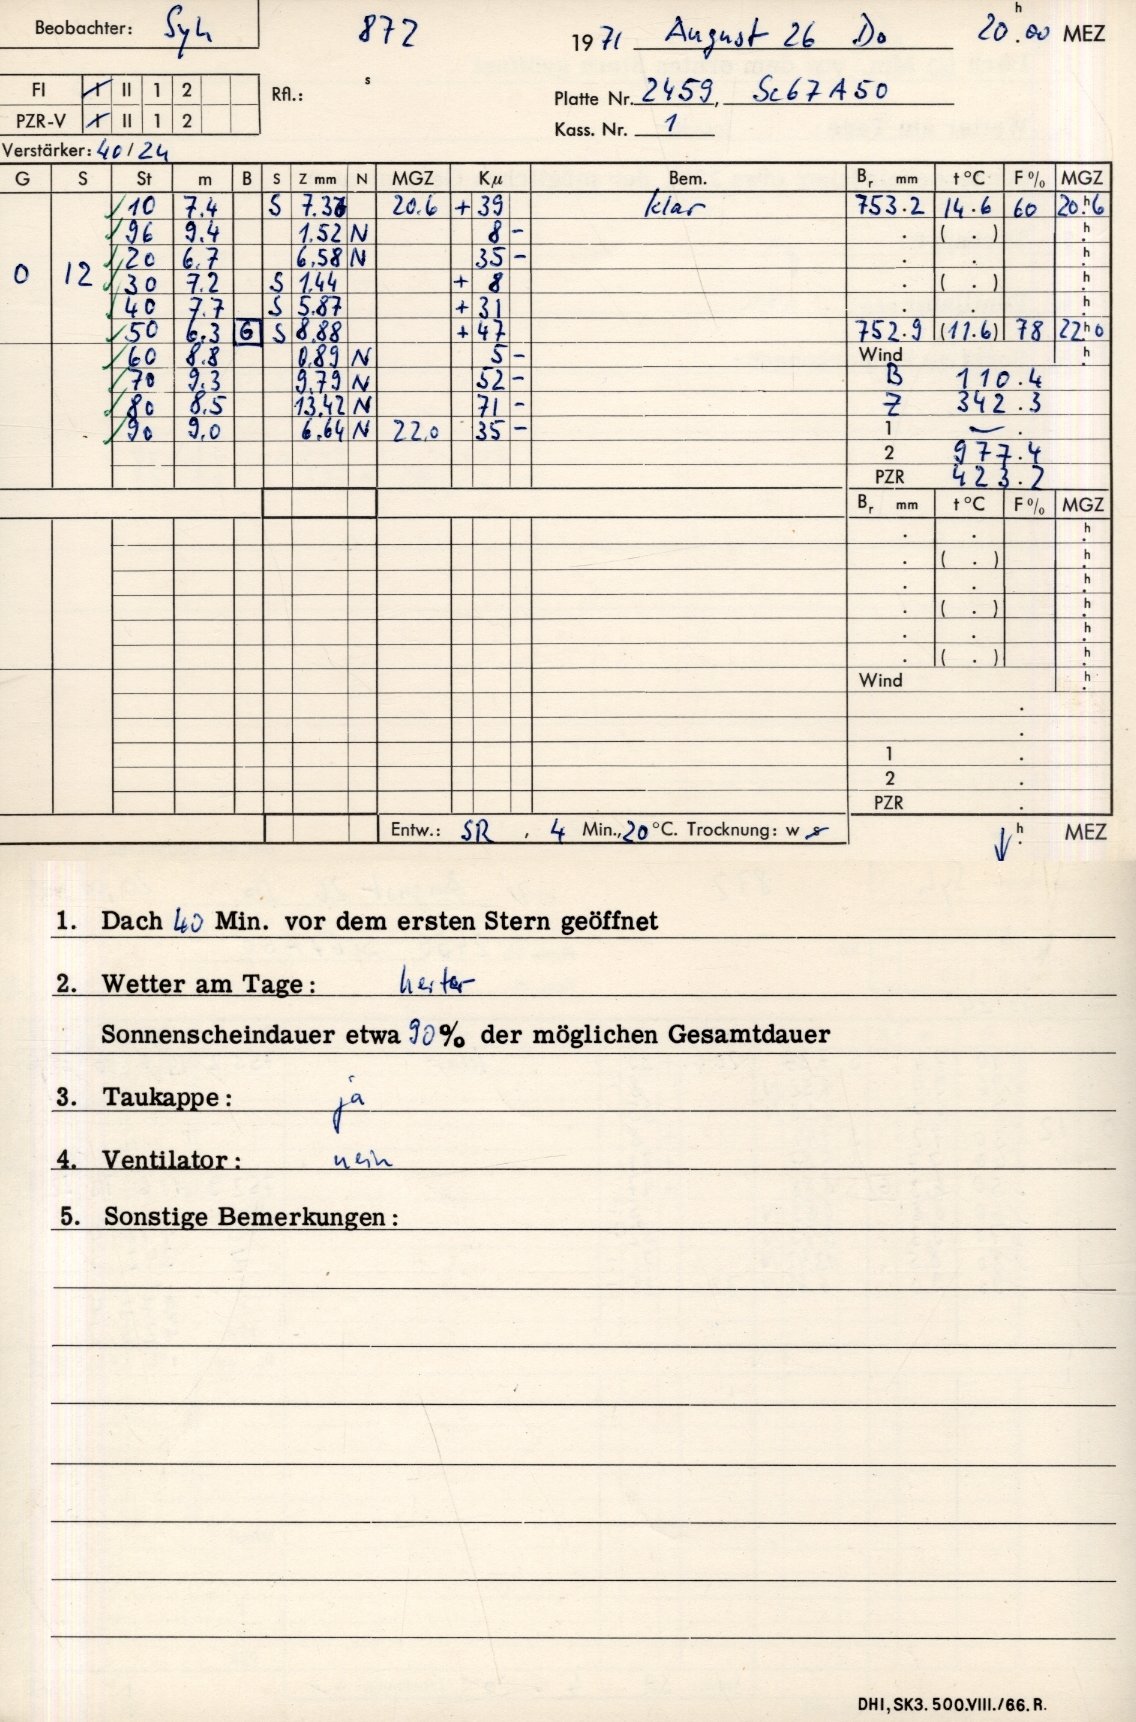 Beobachter: Syh 872 1971 August 26 Do 20.h00 MEZ
FI I II 1 2 Rfl.: s Platte Nr. 2459, Sc67A50
PZR-V I II 1 2 Kass. Nr. 1
Verstärker: 40/24
G S St m B S Z mm N MGZ Kµ Bem. Br mm t°C F% MGZ
10 7.4 S 7.36 20.6 +39 klar 753.2 14.6 60 20.h6
96 9.4 1.52 N 8 - . ( . ) h
20 6.7 6.58 N 35 - . . h
0 12 30 7.2 S 1.44 + 8 . ( . ) h
40 7.7 S 5.87 +31 . . h
50 6.3 G S 8.88 +47 752.9 (11.6) 78 22h0
60 8.8 0.89 N 5 - Wind h
70 9.3 9.79 N 52 - B 110.4
80 8.5 13.42 N 71 - Z 342.3
90 9.0 6.64 N 22.0 35 - 1 — .
2 977.4
PZR 423.2
Br mm t°C F% MGZ
. . h
. ( . ) h
. . h
. ( . ) h
. . h
. ( . ) h
Wind h
.
.
1 .
2 .
PZR .
Entw.: SR , 4 Min., 20 °C. Trocknung: w s ↓ h MEZ
1. Dach 40 Min. vor dem ersten Stern geöffnet
2. Wetter am Tage: heiter
Sonnenscheindauer etwa 90% der möglichen Gesamtdauer
3. Taukappe: ja
4. Ventilator: nein
5. Sonstige Bemerkungen:
DHI, SK3. 500.VIII./66. R.